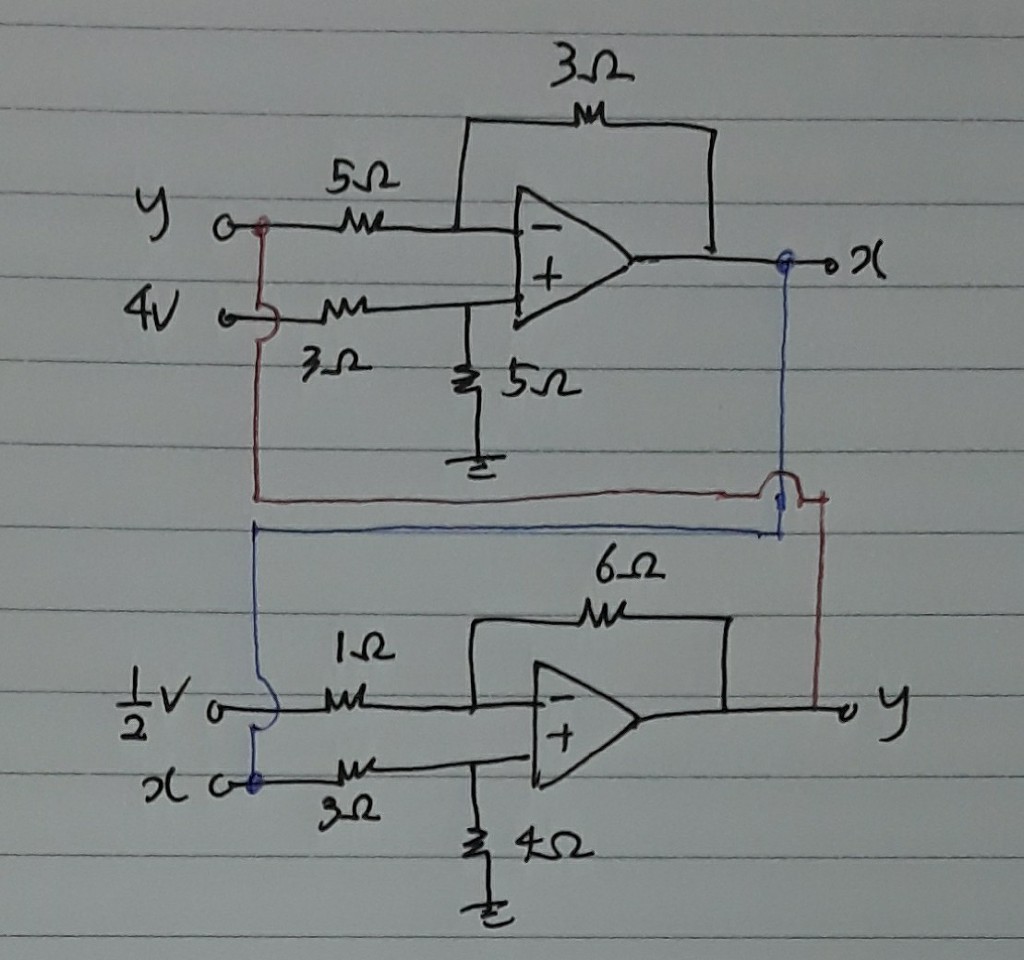 3Ω
5Ω
y
−
4V
+
x
3Ω
5Ω
6Ω
1Ω
1/2 V
−
y
+
x
3Ω
4Ω